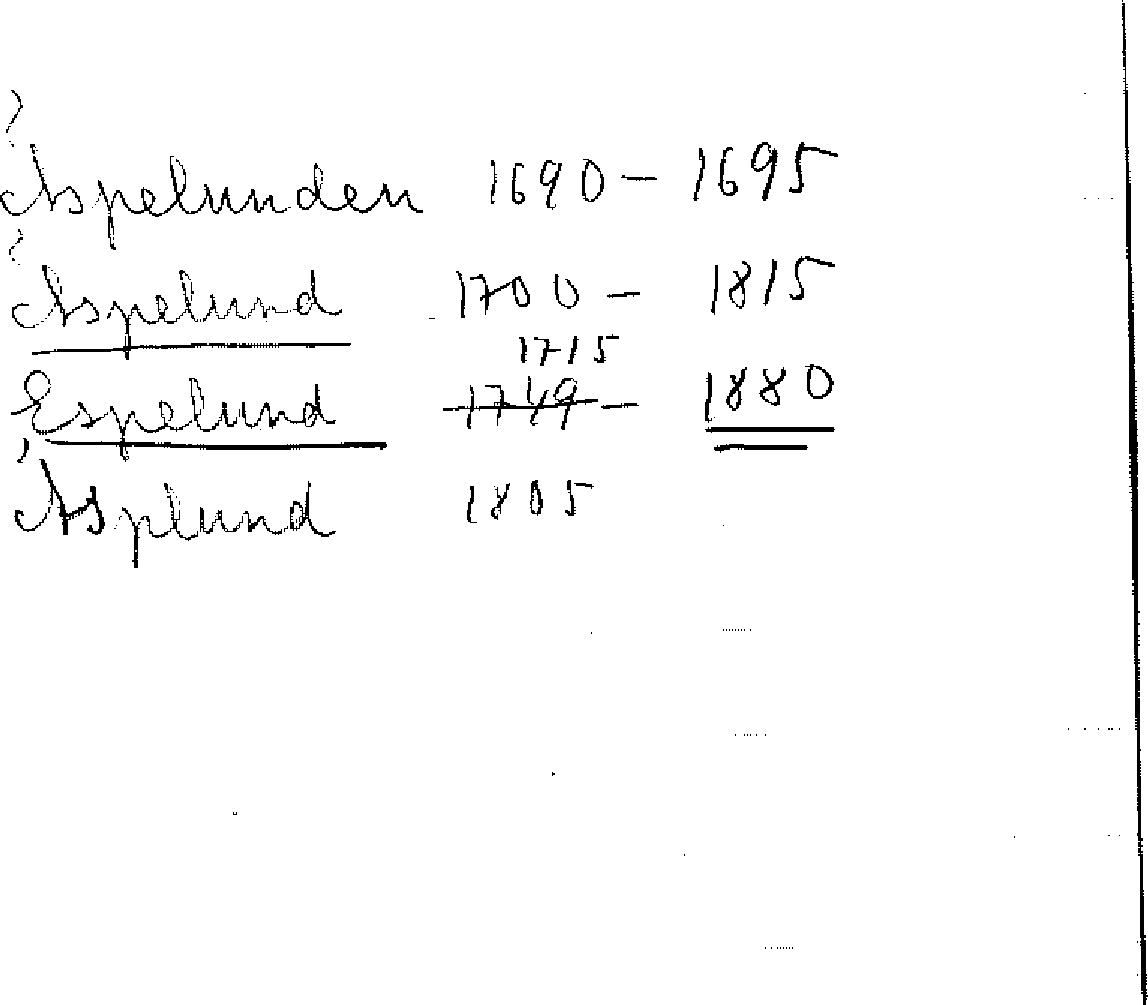 Aspelunden 1690 - 1695
Aspelund 1700 - 1815
1715
Espelund 1749 - 1880
Asplund 1805